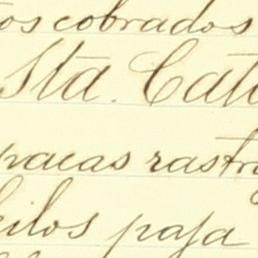 os cobrados
Sta. Cat
pacas rastr
kilos paja